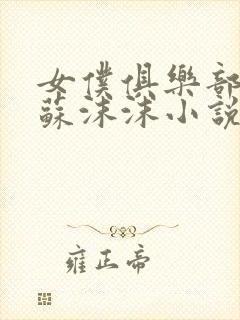 女僕俱樂部
蘇沫沫小說
雍正帝